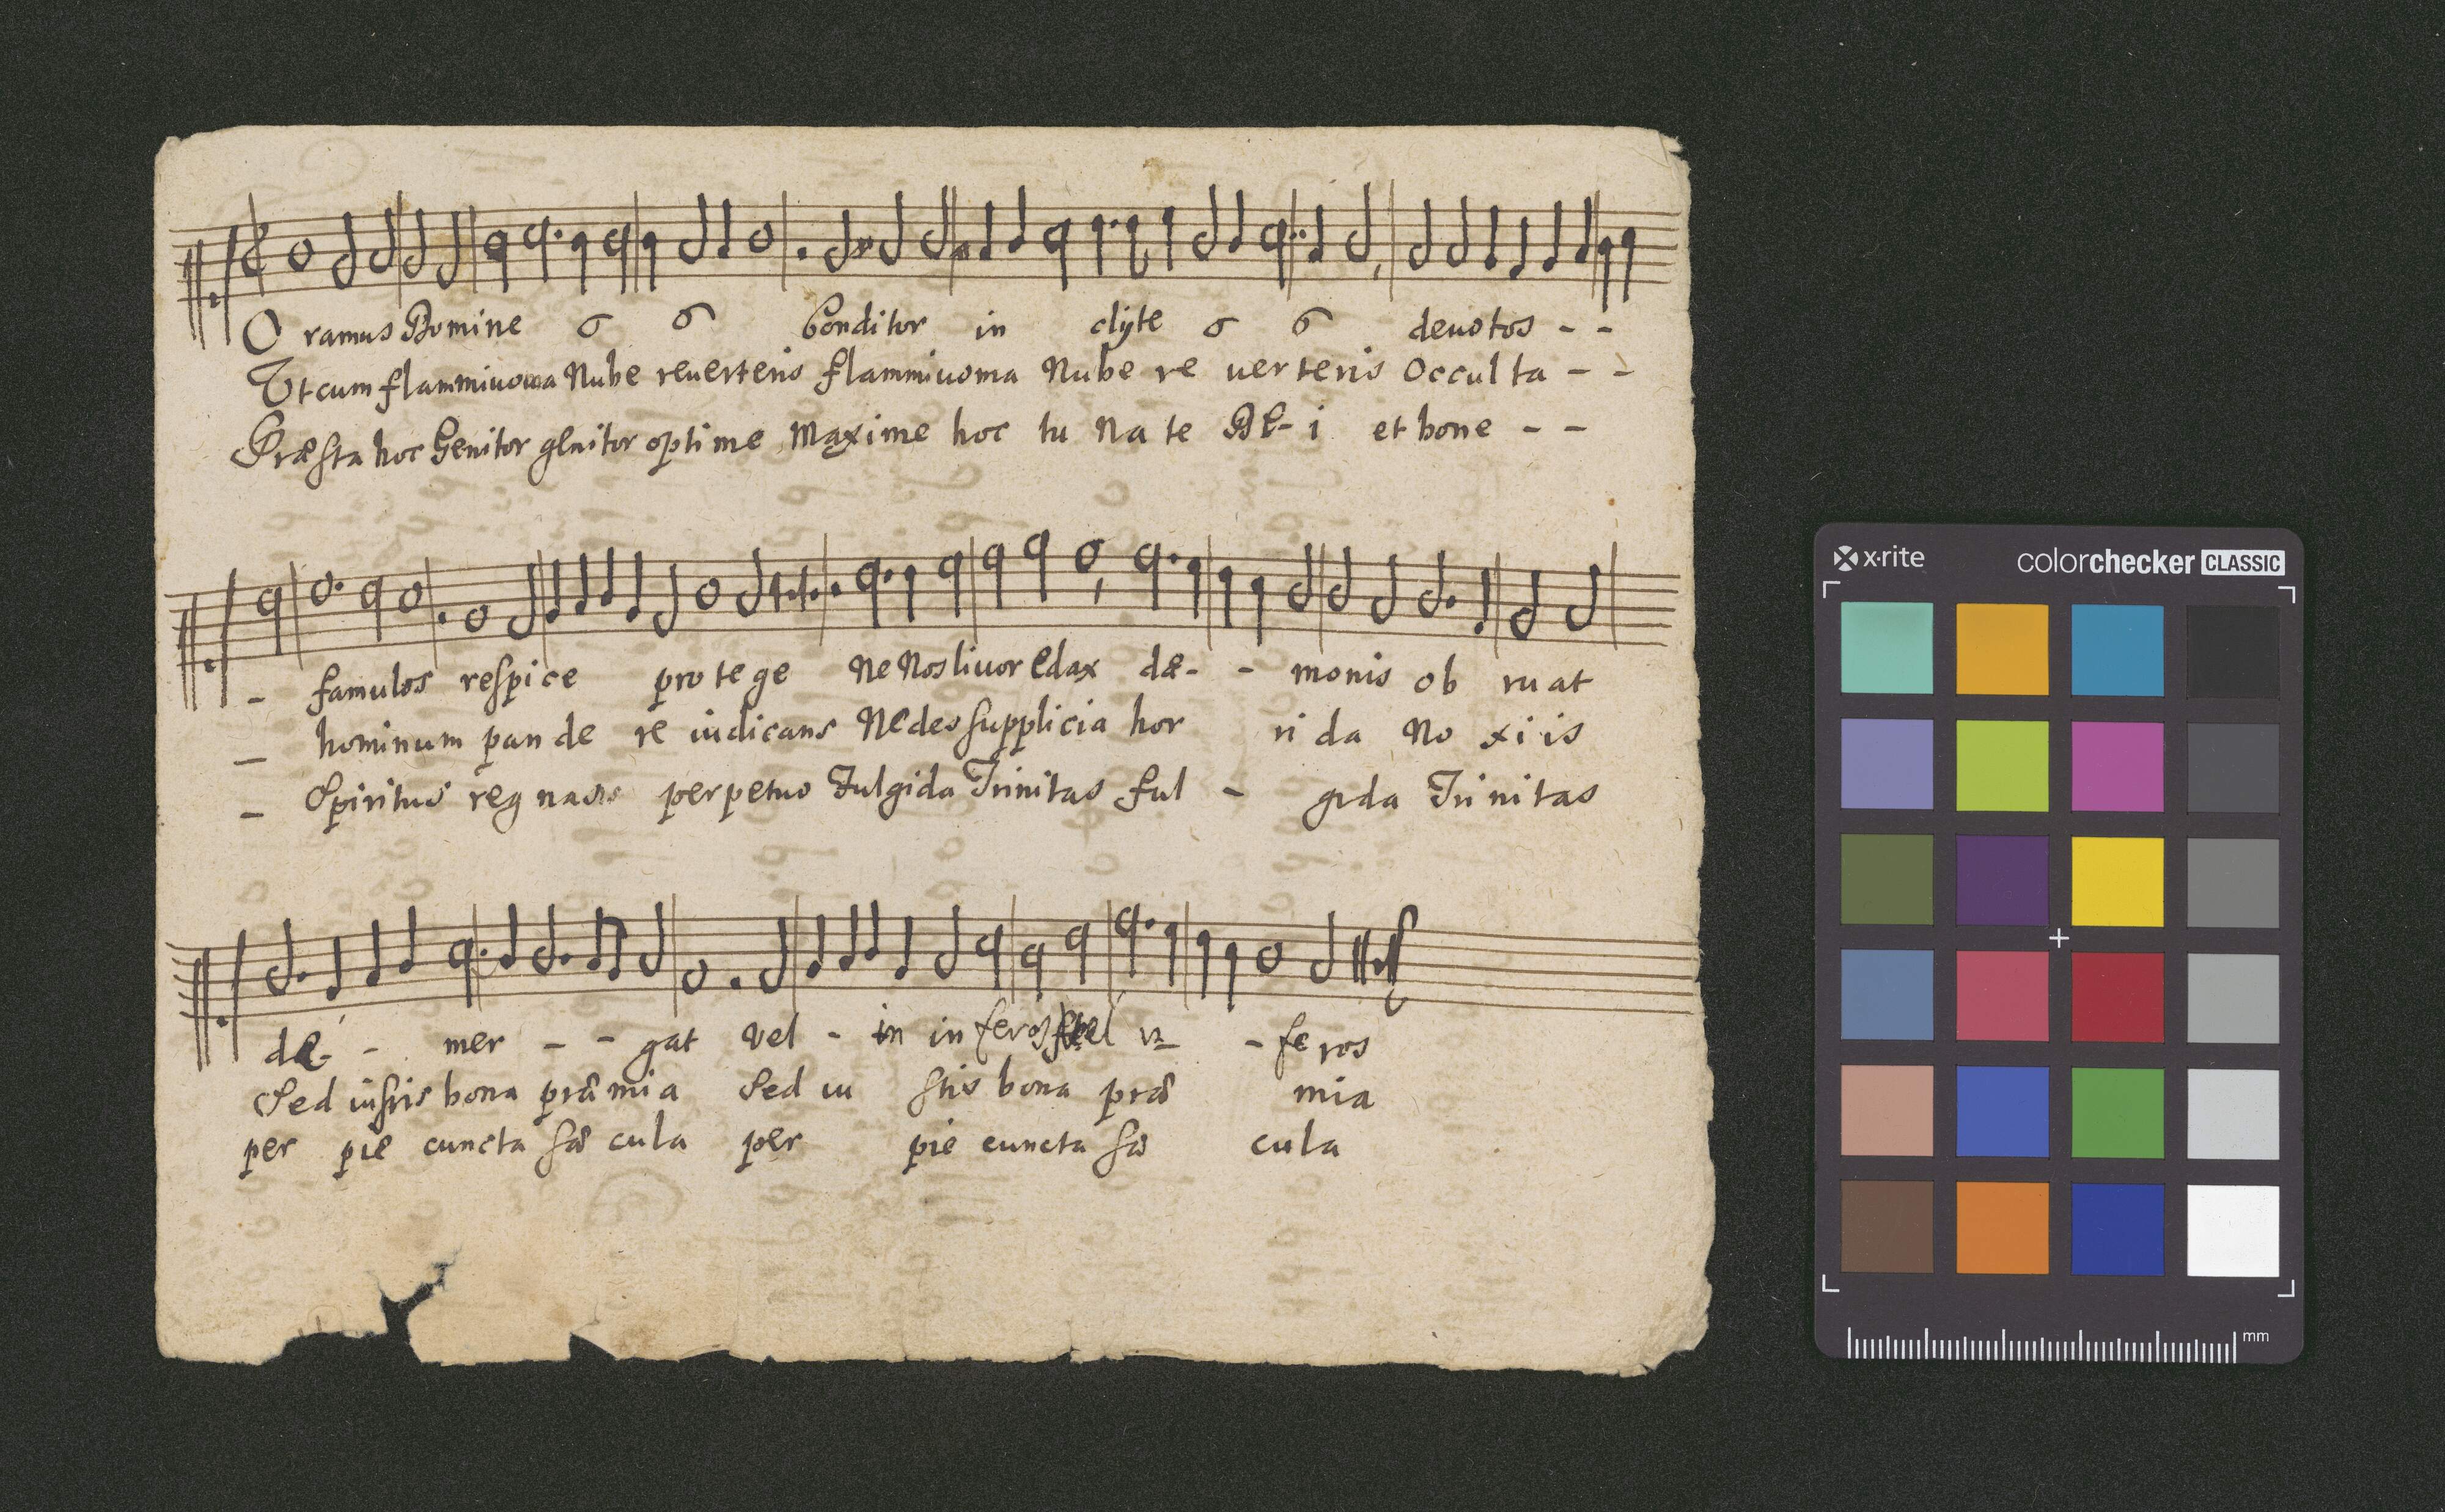 O ramus Domine Conditor in clyte devotos - -
Ut cum flammiuoma Nube reuerteris flammiuoma Nube re uer teris Occul ta - -
Præsta hoc Genitor genitor optime Maxime hoc tu Na te DE- i et bone - -
- famulos respice pro te ge Ne Nos liuor Edax dæ- - monis ob ru at
- hominum pan de re iudicans Ne des supplicia hor ri da No xi is
- Spiritus reg nans perpetuo Fulgida Trinitas ful - gida Tri ni tas
de- - mer - - gat vel - in in feros vel in - fe ros
Sed iustis bona præ mi a Sed iu stis bona præ mia
per pie cuncta sæ cula per pie cuncta sæ cula
x·rite
colorchecker CLASSIC
mm